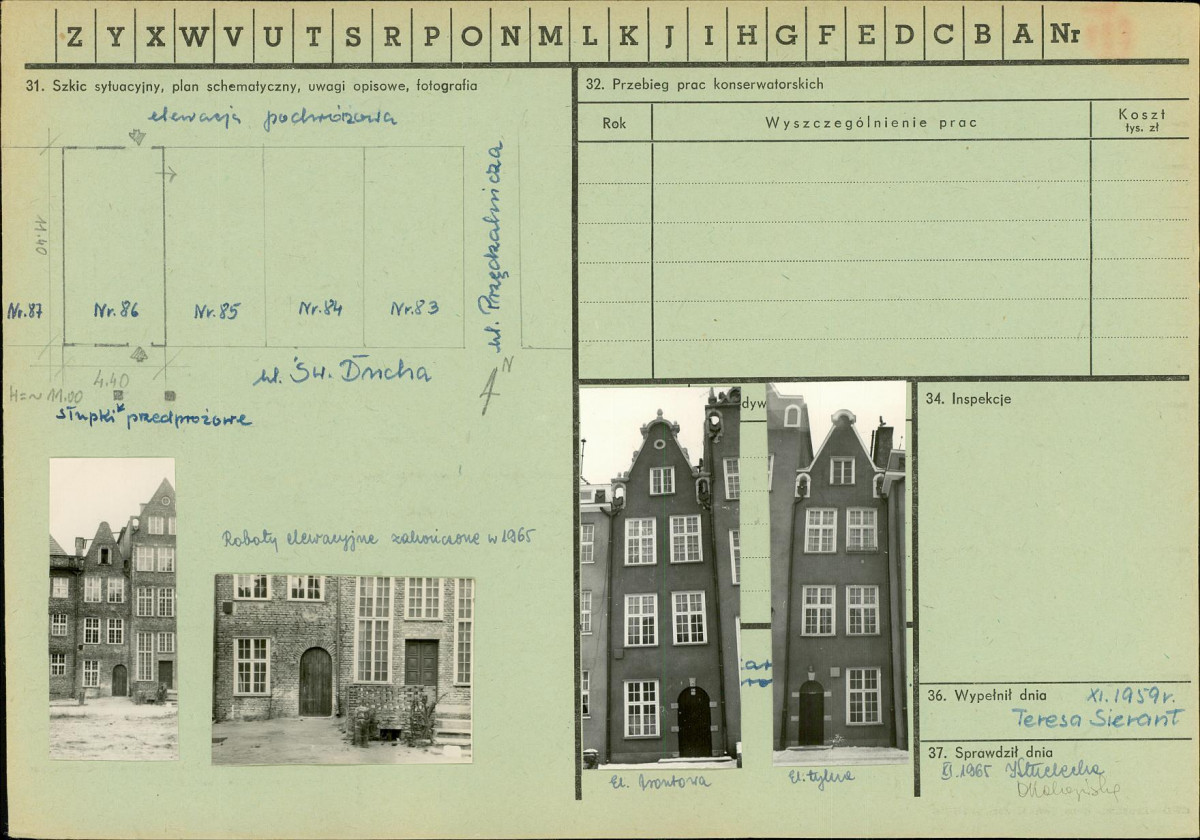 Z Y X W V U T S R P O N M L K J I H G F E D C B A Nr
31. Szkic sytuacyjny, plan schematyczny, uwagi opisowe, fotografia
elewacja podwórzowa
11.40
ul. Przędzalnicza
Nr. 87
Nr. 86
Nr. 85
Nr. 84
Nr. 83
ul. Św. Ducha
N
4.40
H=~11.00
słupki przedprożowe
Roboty elewacyjne zakończone w 1965
32. Przebieg prac konserwatorskich
Rok
Wyszczególnienie prac
Koszt
tys. zł
dyw
El. frontowa
El. tylna
34. Inspekcje
36. Wypełnił dnia XI. 1959 r.
Teresa Sierant
37. Sprawdził dnia
1965